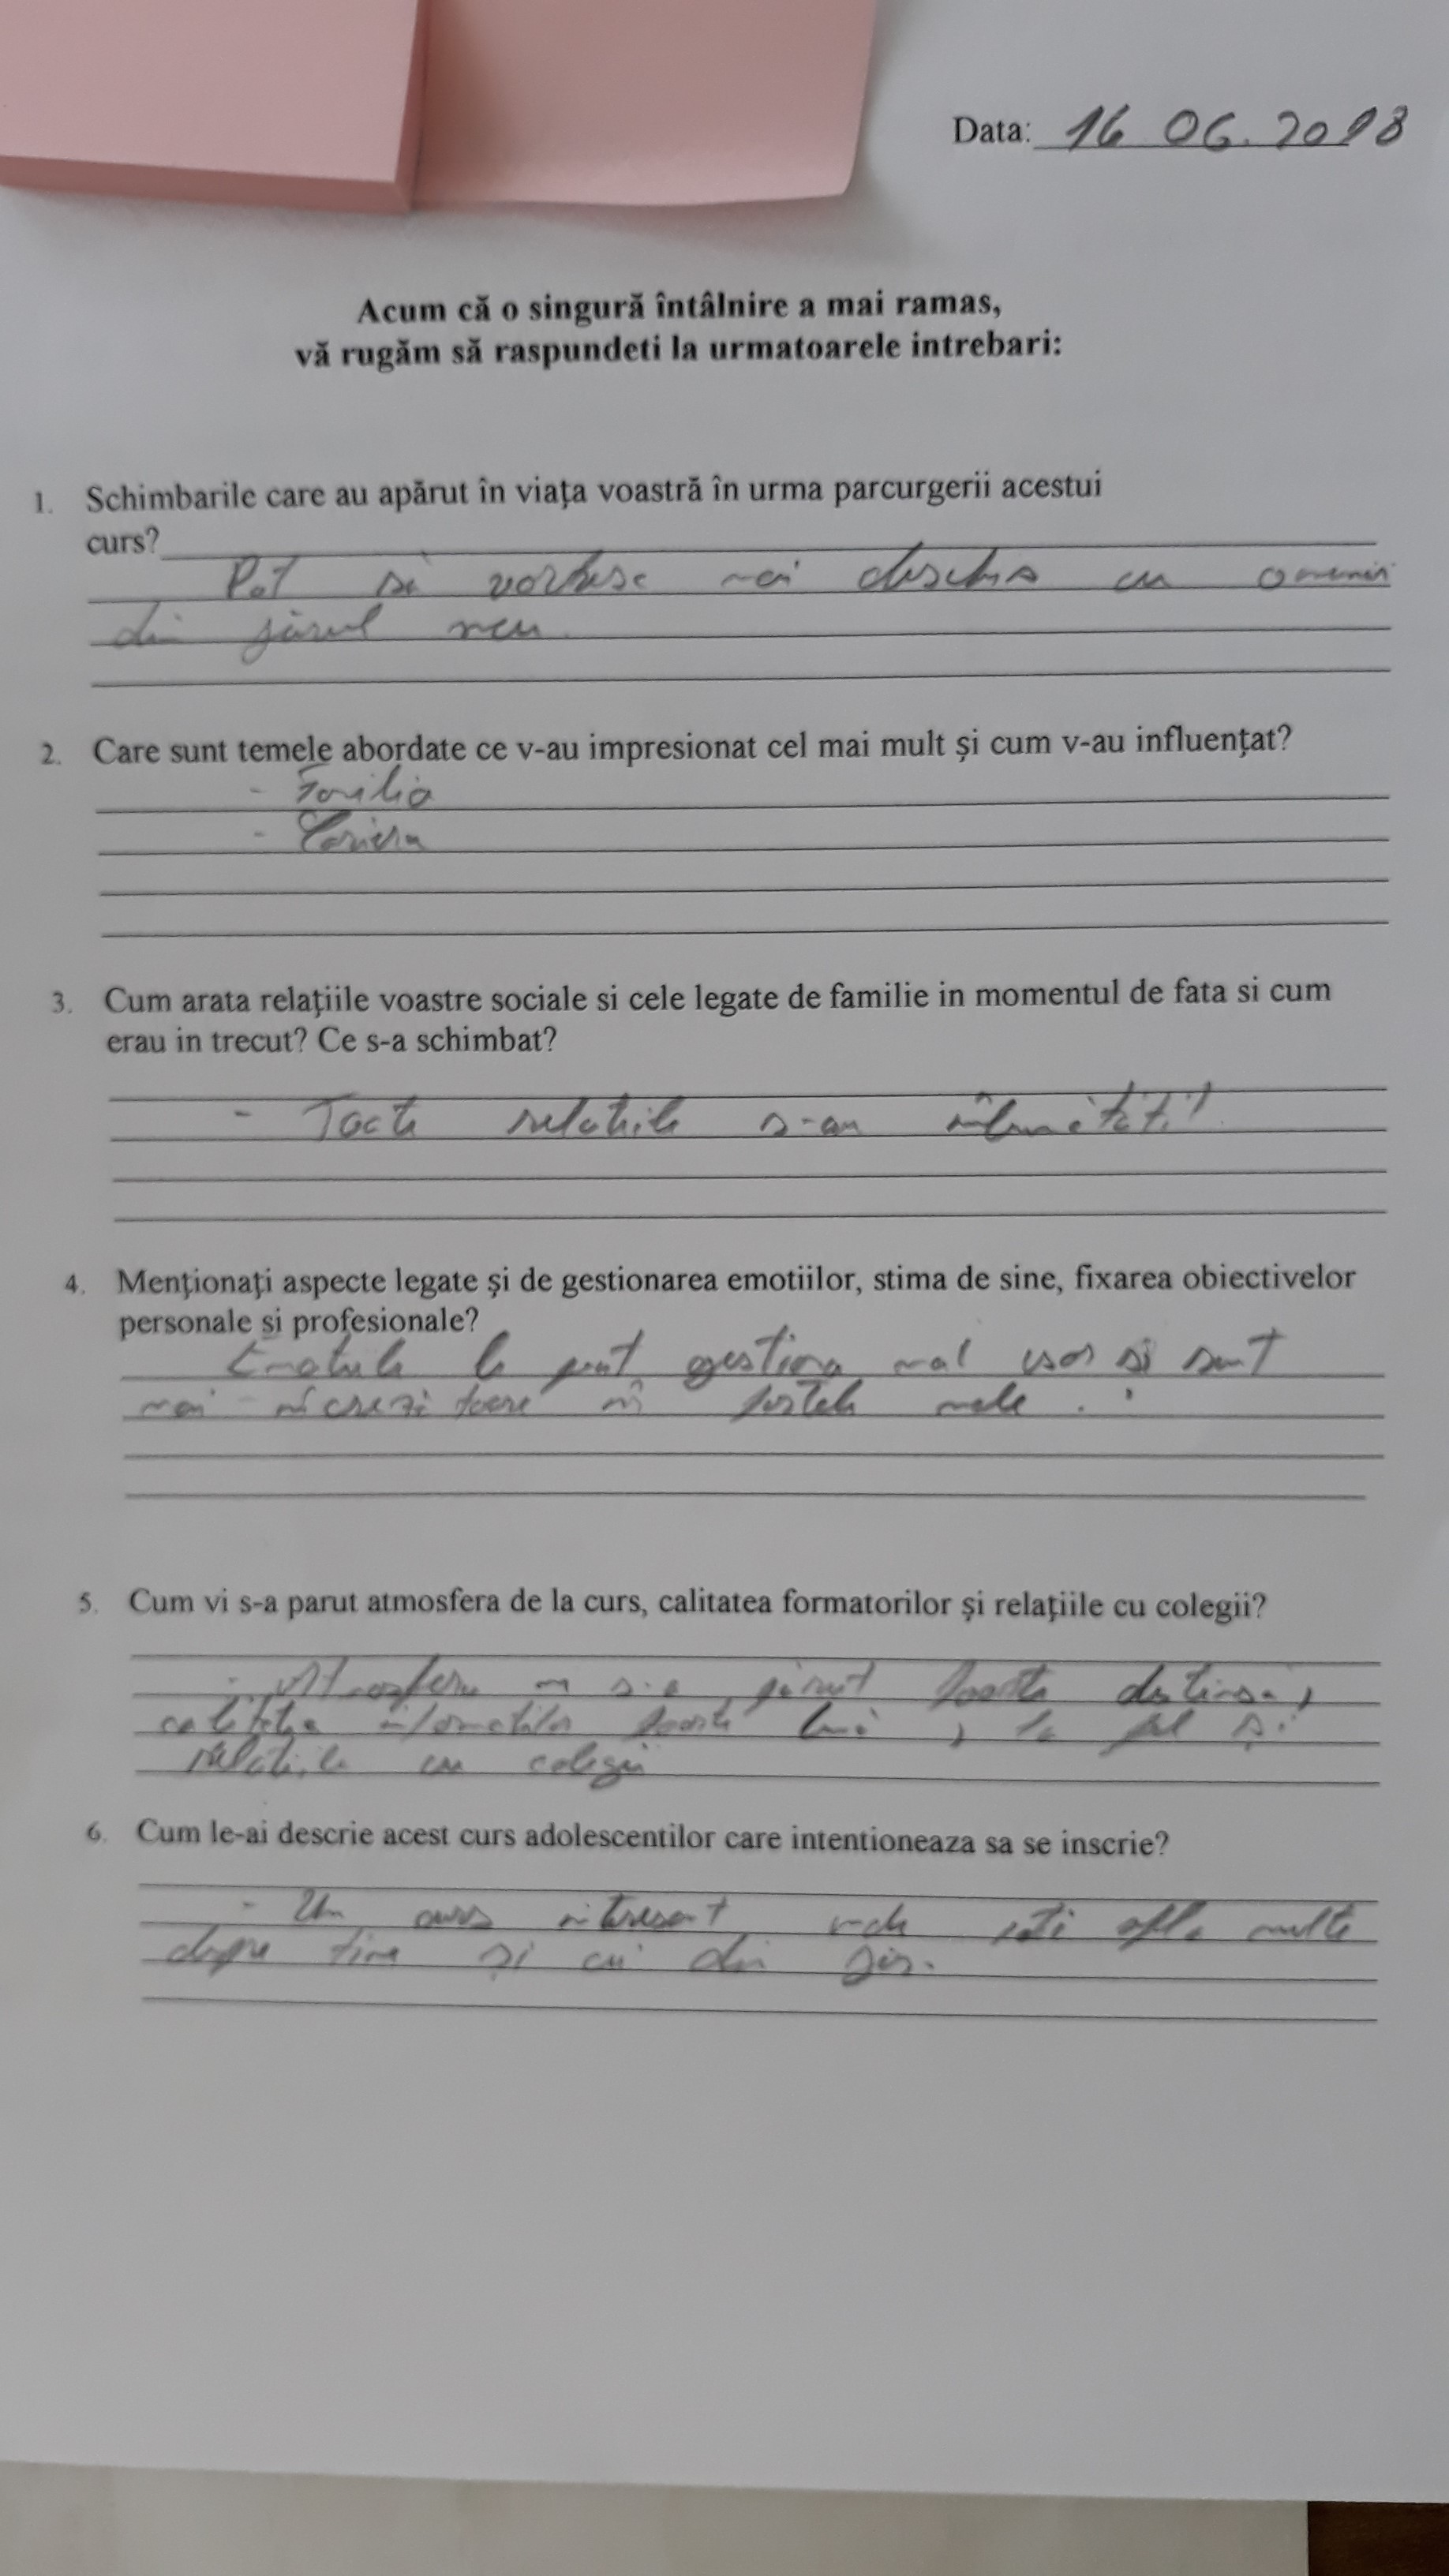 Data: 16 06.2018
Acum că o singură întâlnire a mai ramas,
vă rugăm să raspundeti la urmatoarele intrebari:
1. Schimbarile care au apărut în viața voastră în urma parcurgerii acestui
curs?
Pot să vorbesc mai deschis cu oamenii
din jurul meu
2. Care sunt temele abordate ce v-au impresionat cel mai mult și cum v-au influențat?
- Familia
- Cariera
3. Cum arata relațiile voastre sociale si cele legate de familie in momentul de fata si cum
erau in trecut? Ce s-a schimbat?
- Toate relatiile s-au îmbunătățit
4. Menționați aspecte legate și de gestionarea emotiilor, stima de sine, fixarea obiectivelor
personale si profesionale?
Emotiile le pot gestiona mai usor si sunt
mai încrezătoare în forțele mele.
5. Cum vi s-a parut atmosfera de la curs, calitatea formatorilor și relațiile cu colegii?
- Atmosfera mi s-a părut foarte destinsa,
calitatea foarte la fel și
relațiile cu colegii
6. Cum le-ai descrie acest curs adolescentilor care intentioneaza sa se inscrie?
- Un curs interesant unde poți afla multe
despre tine și cei din jur.